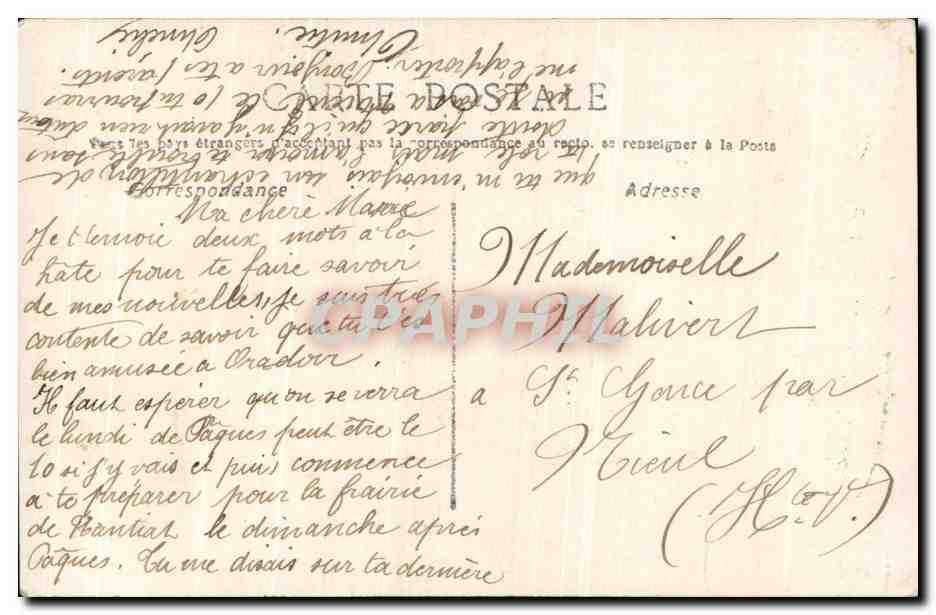 CARTE POSTALE
Tous les pays étrangers n'acceptant pas la correspondance au recto, se renseigner à la Poste
Correspondance
Adresse
Ma chère
Je t'envoie deux mots à la
hâte pour te faire savoir
de mes nouvelles, je suis très
contente de savoir que tu t'es
bien amusée à Oradour.
Il faut espérer qu'on se verra
le lundi de Pâques peut être le
10 si j'y vais et puis commence
à te préparer pour la frairie
de Nantiat le dimanche après
Pâques. Tu me disais sur ta dernière
que tu m'envoyais un échantillon de
ta robe mais
doute parce qu'il n'y avait rien dedans
le 10 tu pourras
me l'apporter. Bonjour a tes parents.
Mademoiselle
Malivert
a St Gence par
Nieul
(Hte V.)
CPAPHIL